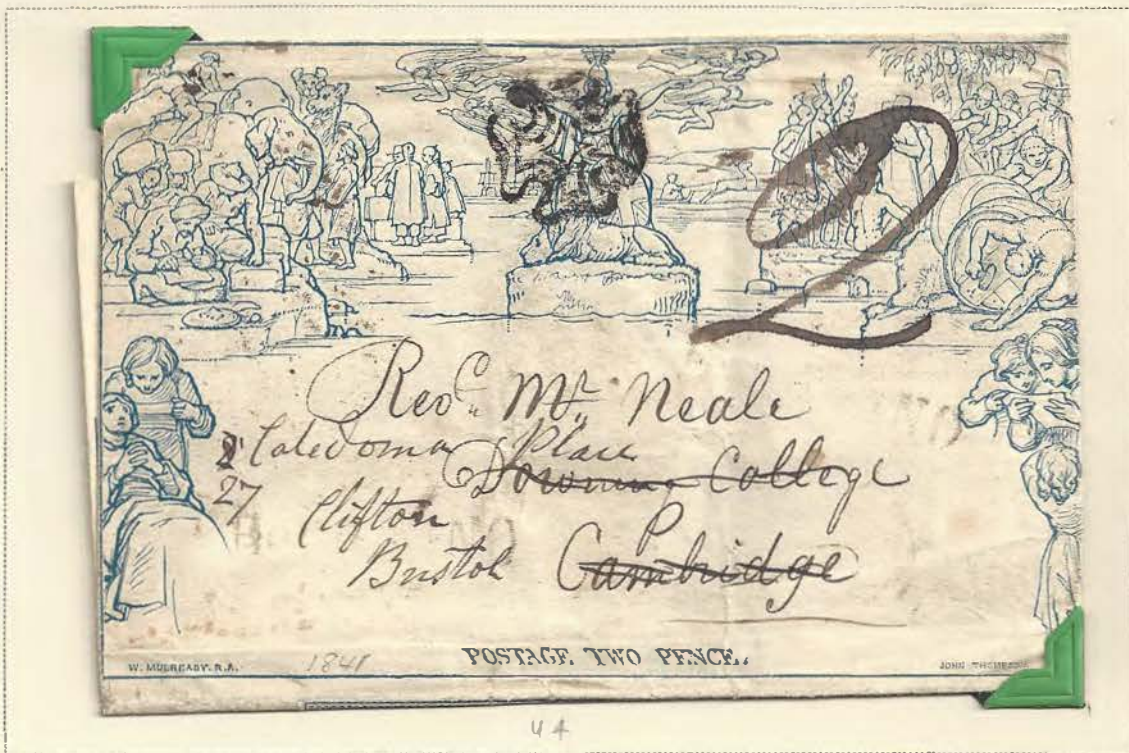 2
Revd. Mr. Neale
Caledonia Place
Downing College
27
Clifton
P
Bristol
Cambridge
W. MULREADY. R.A.
1841
POSTAGE TWO PENCE.
JOHN THOMPSON
44